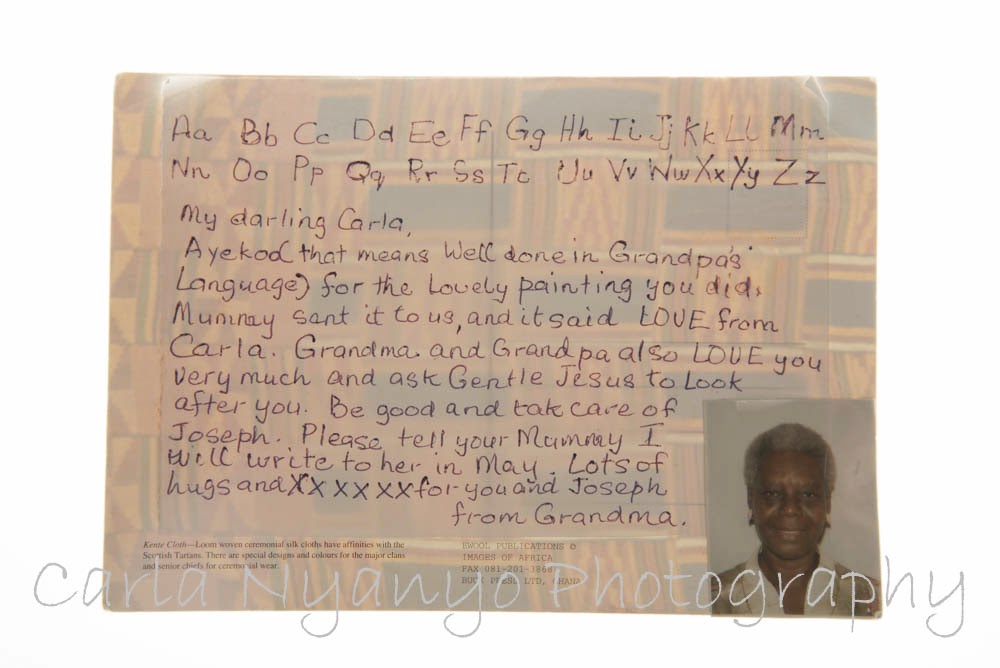 Aa Bb Cc Dd Ee Ff Gg Hh Ii Jj Kk Ll Mm
Nn Oo Pp Qq Rr Ss Tt Uu Vv Ww Xx Yy Zz
My darling Carla,
Ayekoo( that means Well done in Grandpa's
Language) for the Lovely painting you did.
Mummy sent it to us, and it said LOVE from
Carla. Grandma and Grandpa also LOVE you
very much and ask Gentle Jesus to Look
after you. Be good and take care of
Joseph. Please tell your Mummy I
will write to her in May. Lots of
hugs and XXXXXX for you and Joseph
from Grandma.
Kente Cloth—Loom woven ceremonial silk cloths have affinities with the
Scottish Tartans. There are special designs and colours for the major clans
and senior chiefs for ceremonial wear.
EWOOL PUBLICATIONS ©
IMAGES OF AFRICA
FAX 081-201-3868
BUCK PRESS LTD, GHANA
Carla Nyanyo Photography